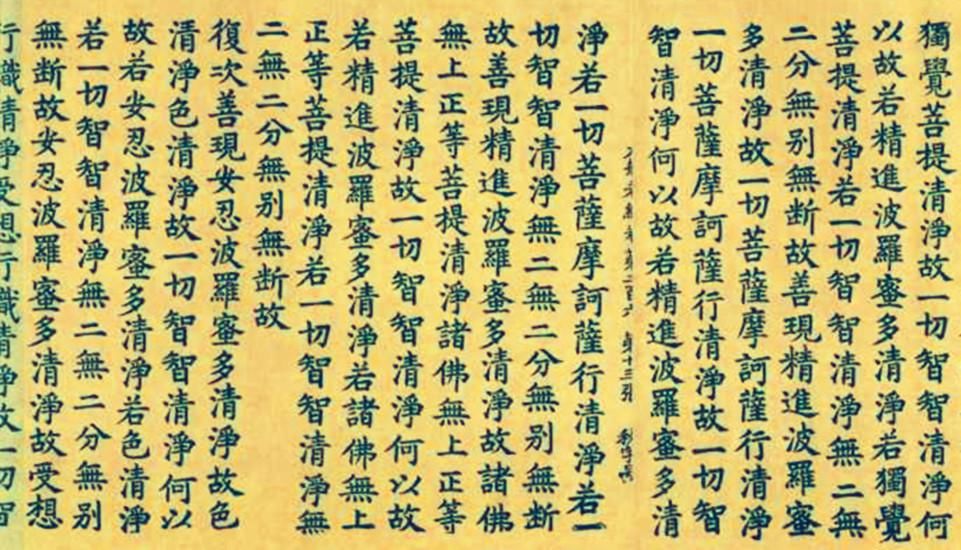 獨覺菩提清淨故一切智智清淨何
以故若精進波羅蜜多清淨若獨覺
菩提清淨若一切智智清淨無二無
二分無別無断故善現精進波羅蜜
多清淨故一切菩薩摩訶薩行清淨
一切菩薩摩訶薩行清淨故一切智
智清淨何以故若精進波羅蜜多清
淨若一切菩薩摩訶薩行清淨若一
切智智清淨無二無二分無別無断
故善現精進波羅蜜多清淨故諸佛
無上正等菩提清淨諸佛無上正等
菩提清淨故一切智智清淨何以故
若精進波羅蜜多清淨若諸佛無上
正等菩提清淨若一切智智清淨無
二無二分無別無断故
復次善現安忍波羅蜜多清淨故色
清淨色清淨故一切智智清淨何以
故若安忍波羅蜜多清淨若色清淨
若一切智智清淨無二無二分無別
無断故安忍波羅蜜多清淨故受想
行識清淨受想行識清淨故一切智